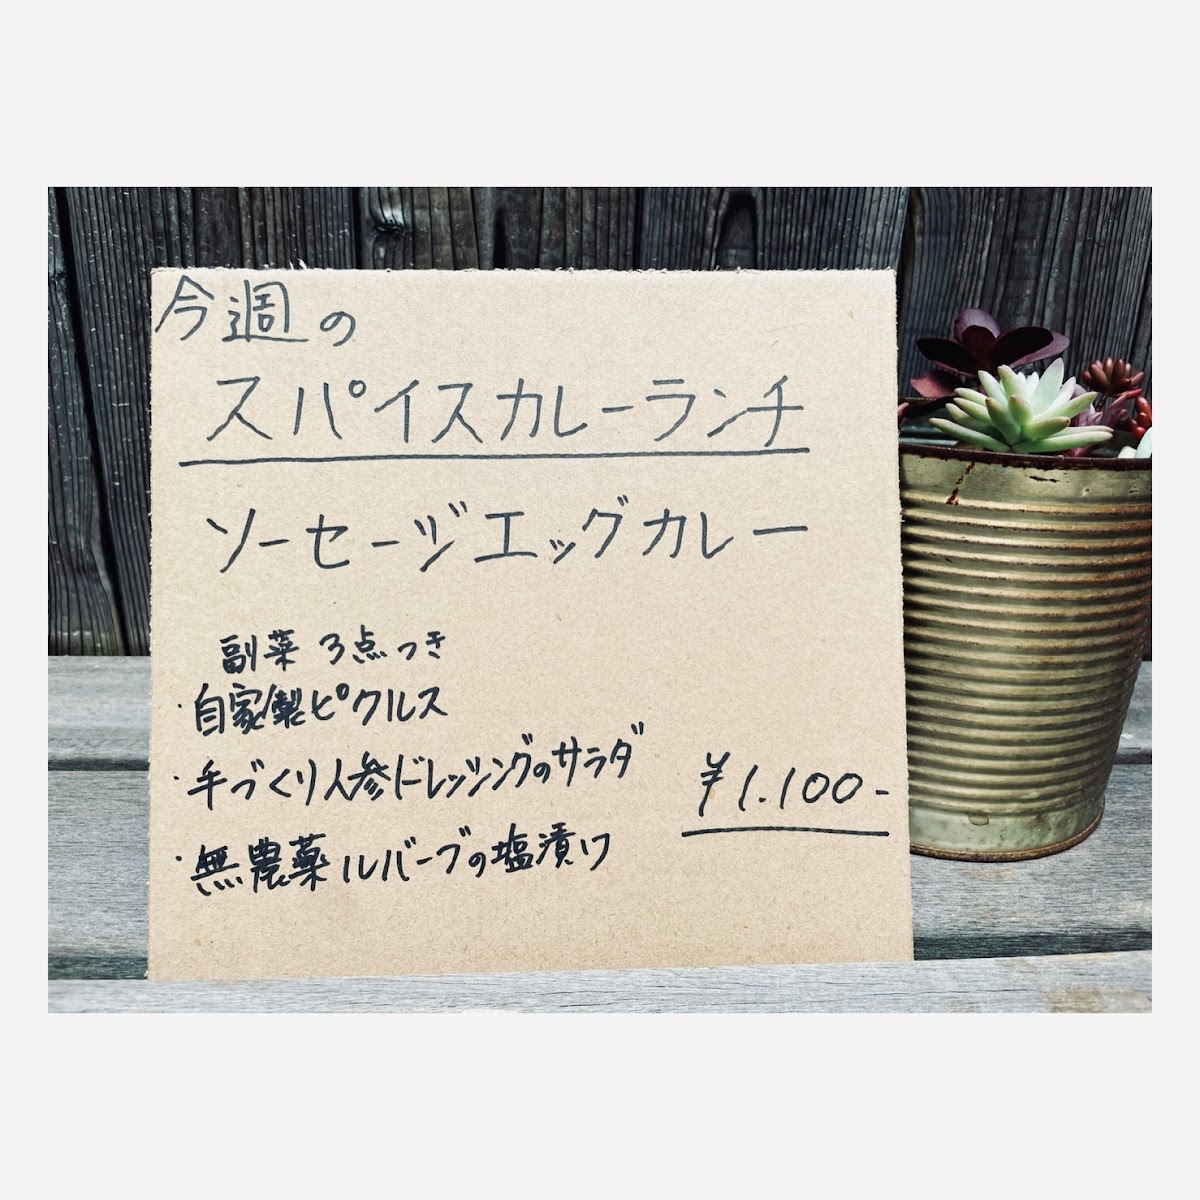 今週の
スパイスカレーランチ
ソーセージエッグカレー
副菜 3点つき
・自家製ピクルス
・手づくり人参ドレッシングのサラダ
¥1.100-
・無農薬ルバーブの塩漬け